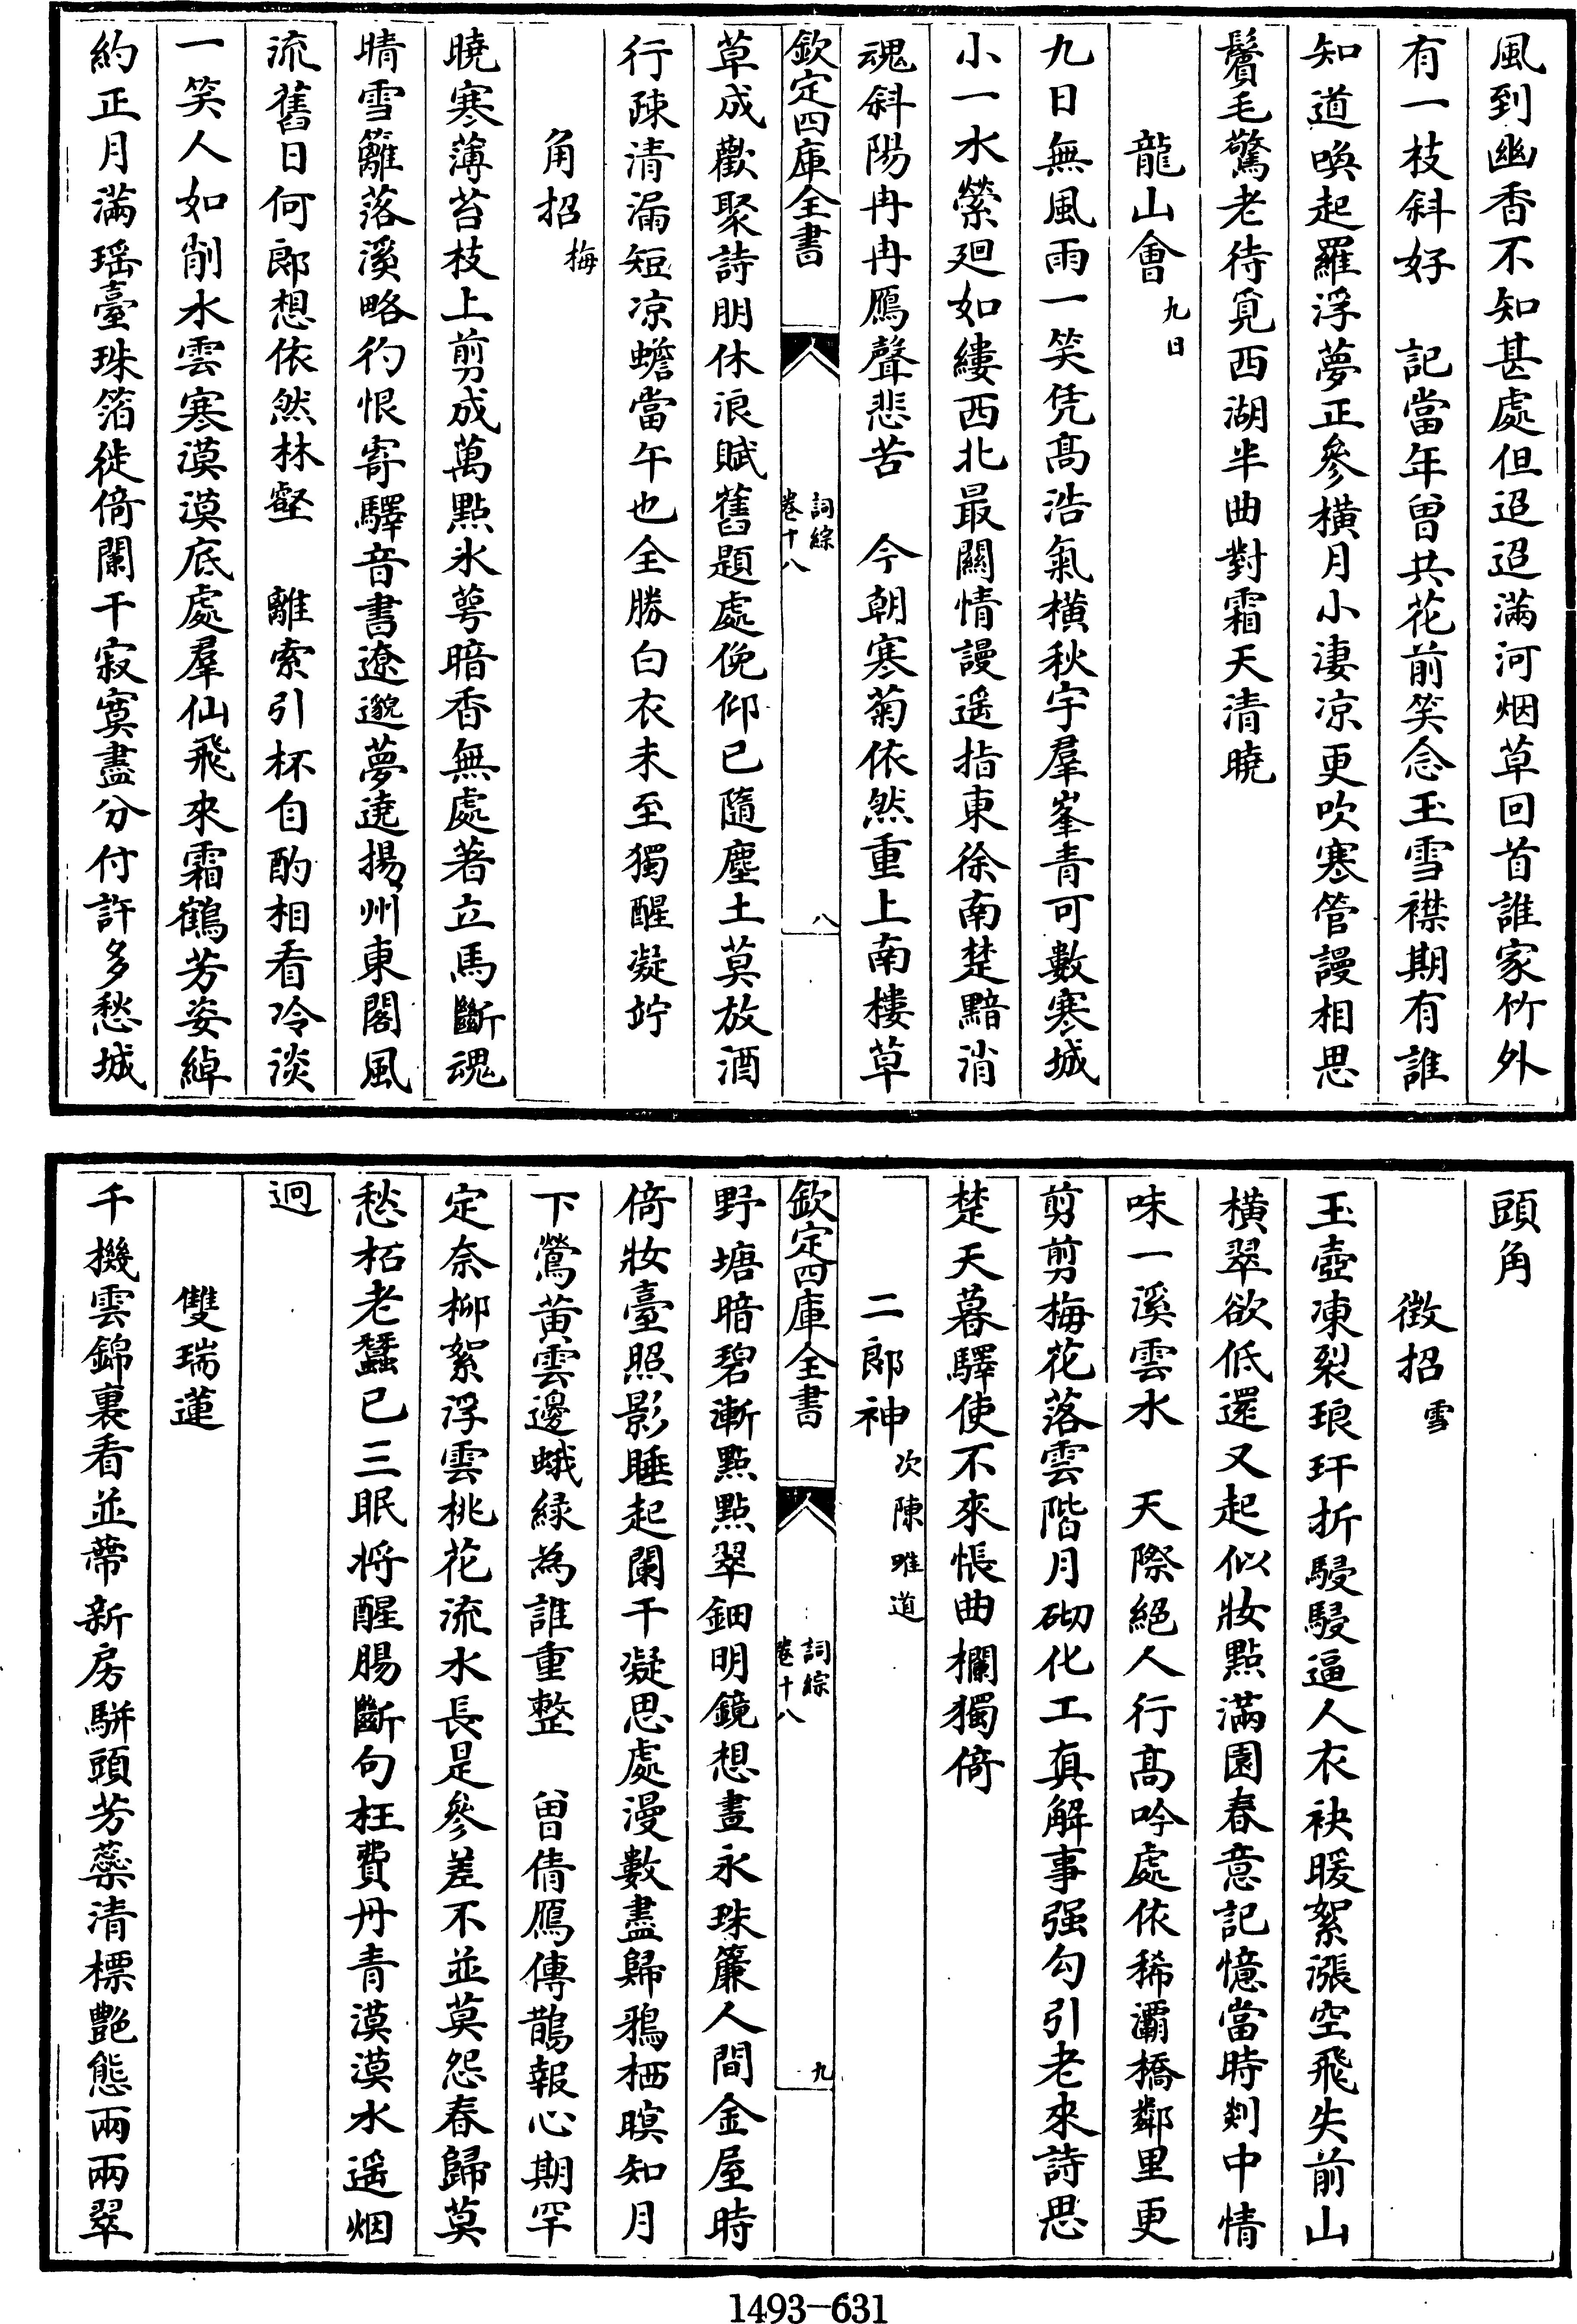 風到幽香不知甚處但迢迢滿河烟草回首誰家竹外
有一枝斜好　記當年曾共花前笑念玉雪襟期有誰
知道喚起羅浮夢正參橫月小淒凉更吹寒管謾相思
鬢毛驚老待覓西湖半曲對霜天清曉
龍山會九日
九日無風雨一笑凭高浩氣橫秋宇羣峯青可數寒城
小一水縈廻如縷西北最關情謾遥指東徐南楚黯消
魂斜陽冉冉鴈聲悲苦　今朝寒菊依然重上南樓草
欽定四庫全書　詞綜卷十八　八
草成歡聚詩朋休浪賦舊題處俛仰已隨塵土莫放酒
行疎清漏短凉蟾當午也全勝白衣未至獨醒凝竚
角招梅
曉寒薄苔枝上剪成萬點氷萼暗香無處著立馬斷魂
晴雪籬落溪略彴恨寄驛音書遼邈夢遶揚州東閣風
流舊日何郎想依然林壑　離索引杯自酌相看冷淡
一笑人如削水雲寒漠漠底處羣仙飛來霜鶴芳姿綽
約正月滿瑶臺珠箔徙倚闌干寂寞盡分付許多愁城
頭角
徴招雪
玉壺凍裂琅玕折駸駸逼人衣袂暖絮漲空飛失前山
橫翠欲低還又起似妝點滿園春意記憶當時剡中情
味一溪雲水　天際絕人行高吟處依稀灞橋鄰里更
剪剪梅花落雲階月砌化工真解事强勾引老來詩思
楚天暮驛使不來悵曲欄獨倚
二郎神次陳唯道
欽定四庫全書　詞綜卷十八　九
野塘暗碧漸點點翠鈿明鏡想晝永珠簾人間金屋時
倚妝臺照影睡起闌干凝思處漫數盡歸鴉栖暝知月
下鶯黃雲邊蛾緑為誰重整　曾倩鴈傳鵲報心期罕
定奈柳絮浮雲桃花流水長是參差不並莫怨春歸莫
愁柘老蠶已三眠将醒腸斷句枉費丹青漠漠水遥烟
迥
雙瑞蓮
千機雲錦裏看並蔕新房駢頭芳蘂清標艶態兩兩翠
1493-631